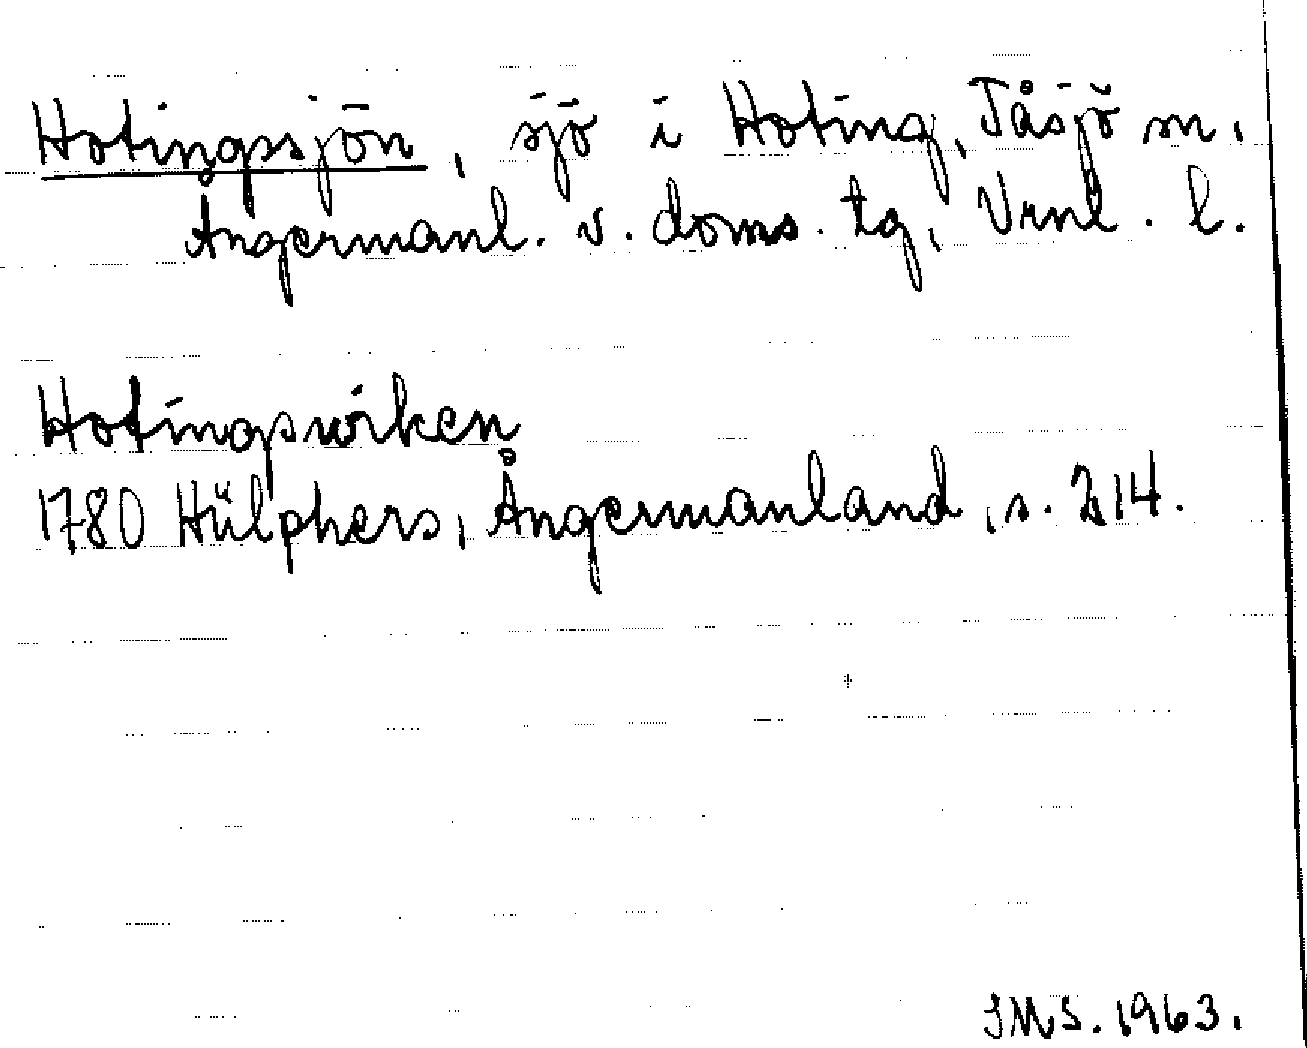 Hotingsjön, sjö i Hoting, Tåsjö sn,
Ångermanl. v. doms. tg, Vrnl. l.
Hotingswiken
1780 Hülphers, Ångermanland, s. 214.
SMS. 1963.